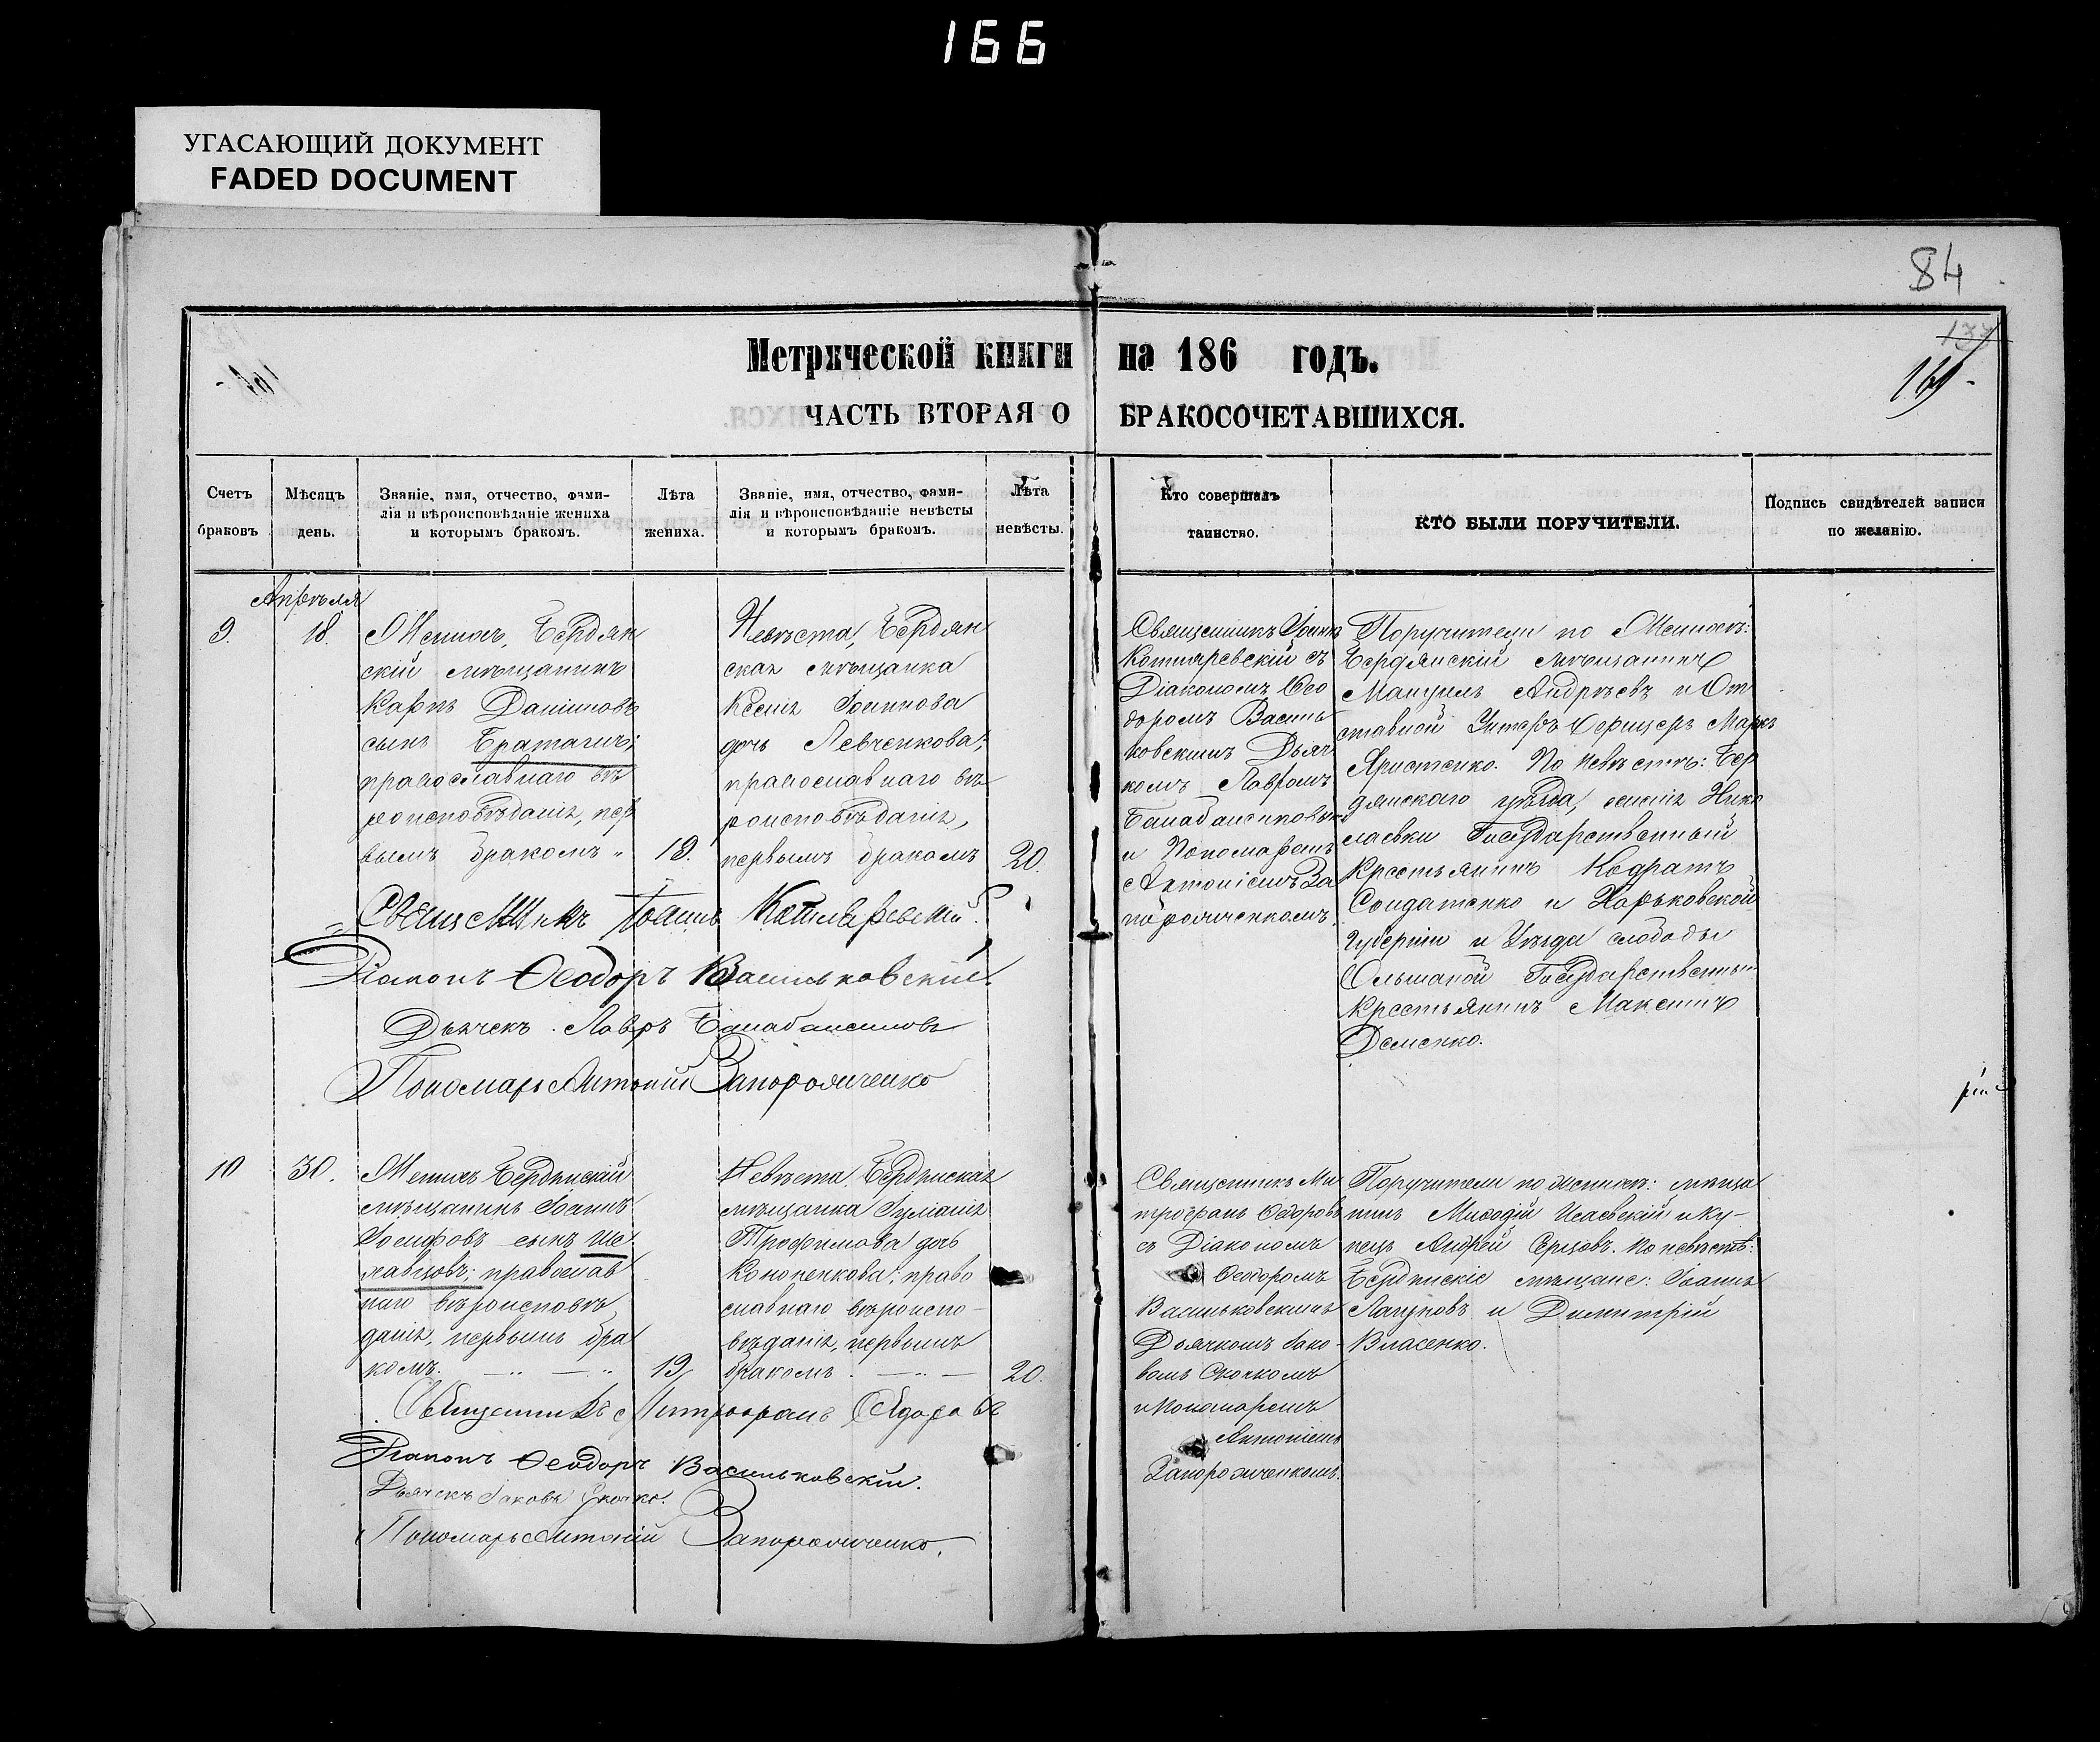 166
УГАСАЮЩИЙ ДОКУМЕНТ
FADED DOCUMENT
84
177
169.
Метрической книги на 186 годъ.
ЧАСТЬ ВТОРАЯ О БРАКОСОЧЕТАВШИХСЯ.
Счетъ
браковъ
Мѣсяцъ
день.
Званіе, имя, отчество, фами-
лія и вѣроисповѣданіе жениха
и которымъ бракомъ.
Лѣта
жениха.
Званіе, имя, отчество, фами-
лія и вѣроисповѣданіе невѣсты
и которымъ бракомъ.
Лѣта
невѣсты.
Кто совершалъ
таинство.
КТО БЫЛИ ПОРУЧИТЕЛИ.
Подпись свидѣтелей записи
по желанію.
Апрѣля
9.
18.
Женихъ, Бердян
скій мѣщанинъ
Карпъ Даніиловъ
сынъ Браташъ;
православнаго вѣ
роисповѣданія, пер
вымъ бракомъ "
19.
Невѣста, Бердян
ская мѣщанка
Ксенія Іоаннова
дочь Левченкова;
православнаго вѣ
роисповѣданія,
первымъ бракомъ
20.
Священникъ Іоаннъ
Котляревскій съ
Діакономъ Ѳео
доромъ Василь
ковскимъ Дьяч
комъ Лавромъ
и Пономаремъ
Антоніемъ За
порожченкомъ.
Поручители по Женихѣ:
Бердянскій мѣщанинъ
Мануилъ Андреевъ и От
ставной Унтеръ Офицеръ Маркъ
Яристенко. По невѣстѣ: Бер
дянскаго уѣзда, селенія Нико
лаевки Государственный
Крестьянинъ Кодратъ
Солдатенко и Харьковской
Губерніи и Уѣзда слободы
Ольшаной Государственный
Крестьянинъ Максимъ
Деменко.
Священникъ Іоаннъ Котляревскій.
Діаконъ Ѳеодоръ Васильковскій
Дьячекъ Лавръ
Пономарь Антоній Запорожченко
10
30.
Женихъ Бердянскій
мѣщанинъ Іоаннъ
Іосифовъ сынъ Ше
лавцовъ; православ
наго вѣроисповѣ
данія, первымъ бра
комъ.
19
Невѣста Бердянская
мѣщанка Іуліанія
Трофимова дочь
Кононенкова; право
славнаго вѣроиспо-
вѣданія, первымъ
бракомъ.
20.
Священникъ Ми
трофанъ Ѳедоровъ
съ Діакономъ
Ѳеодоромъ
Васильковскимъ
Дьячкомъ Іако-
вомъ Скочкомъ
и Пономаремъ
Антоніемъ
Запорожченкомъ.
Поручители по женихѣ: мѣща
нинъ Миѳодій Исаевскій и Ку-
пецъ Андрей Серцовъ. По невѣстѣ:
Бердянскіе мѣщане: Іоаннъ
Лапуновъ и Димитрій
Власенко.
Священникъ Митрофанъ Ѳедоровъ
Діаконъ Ѳеодоръ Васильковскій.
Дьячекъ Іаковъ Скочко.
Пономарь Антоній Запорожченко.